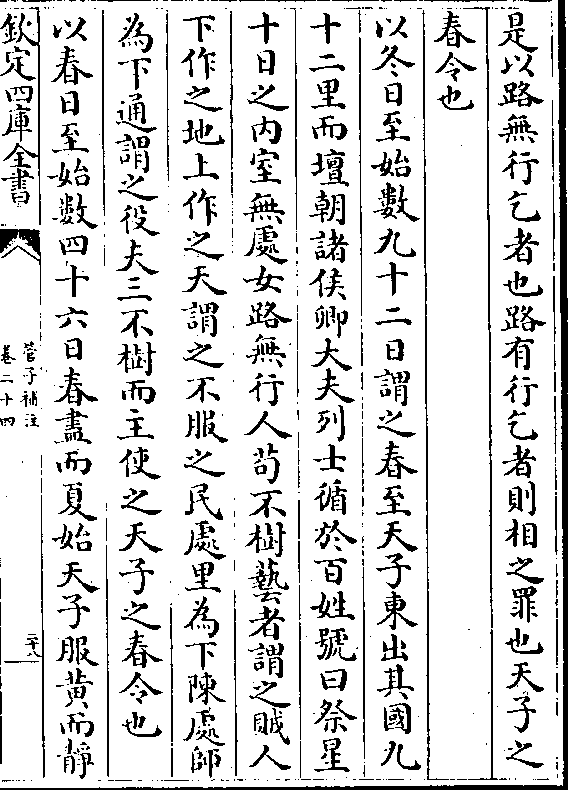 是以路無行乞者也路有行乞者則相之罪也天子之
春令也
以冬日至始數九十二日謂之春至天子東出其國九
十二里而壇朝諸侯卿大夫列士循於百姓號曰祭星
十日之内室無處女路無行人苟不樹藝者謂之賊人
下作之地上作之天謂之不服之民處里為下陳處師
為下通謂之役夫三不樹而主使之天子之春令也
以春日至始數四十六日春盡而夏始天子服黄而靜
欽定四庫全書
管子補注
卷二十四
二十八